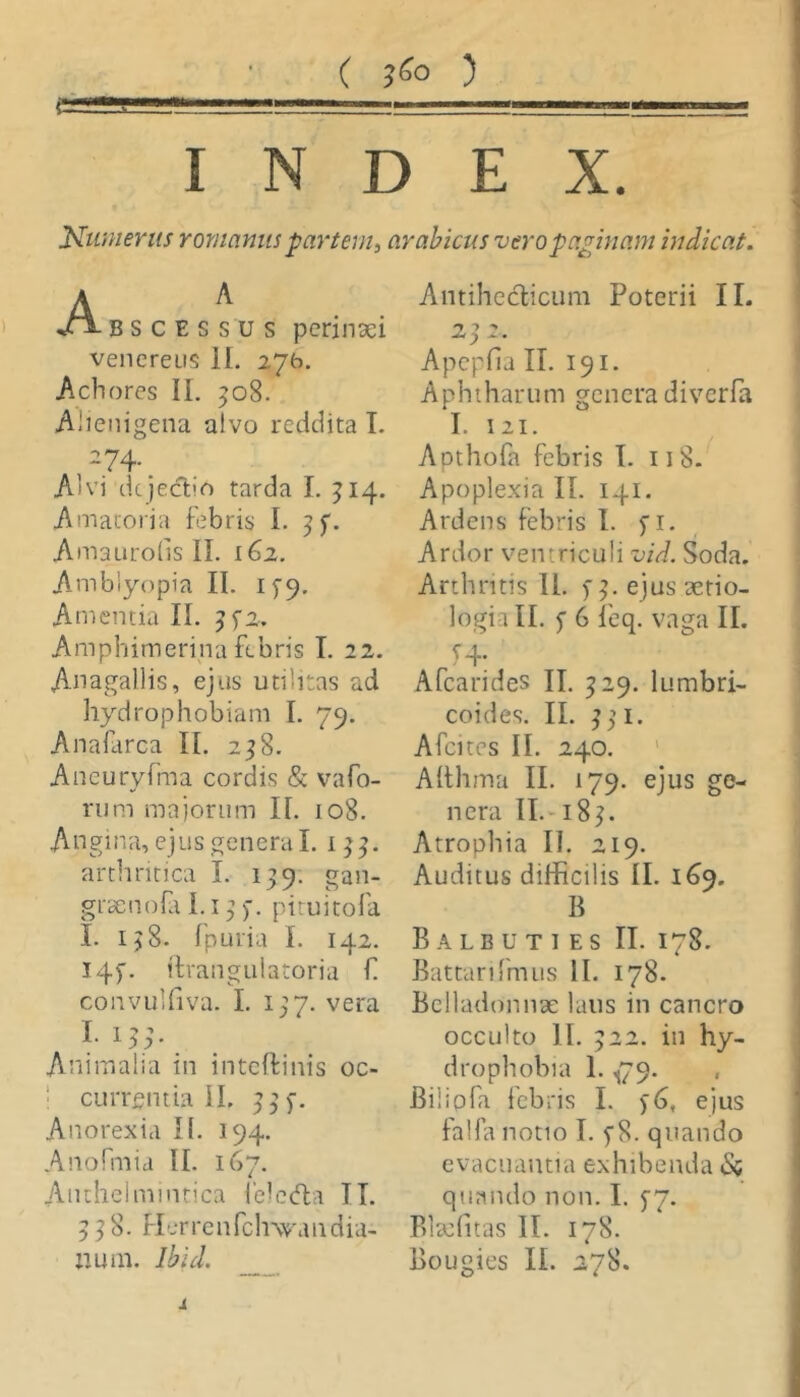 ( 360 )
INDEX.
Numerus romanus partem, arabicus vero paginam indicat.
A
ABSCESSUS perinæi
venereus II. 276.
Achores II. 308.
Alienigena alvo reddita I.
274.
Alvi dejectio tarda I. 314.
Amatoria febris I. 35.
Amauroſis II. 162.
Amblyopia II. 159.
Amentia II. 352.
Amphimerina febris I. 22.
Anagallis, ejus utilitas ad
hydrophobiam I. 79.
Anaſarca II. 238.
Aneuryſma cordis & vaſo-
rum majorum II. 108.
Angina, ejus genera I. 133.
arthritica I. 139. gan-
grænoſa I. 135. pituitoſa
I. 138. ſpuria I. 142.
145. ſtrangulatoria ſ.
convulſiva. I. 137. vera
I. 133.
Animalia in inteſtinis oc-
currentia II. 335.
Anorexia II. 194.
Anoſmia II. 167.
Anthelmintica ſelecta II.
338. Herrenſchwandia-
num. Ibid.
Antihecticum Poterii II.
232.
Apepſia II. 191.
Aphtharum genera diverſa
I. 121.
Apthoſa febris I. 118.
Apoplexia II. 141.
Ardens febris I. 51.
Ardor ventriculi vid. Soda.
Arthritis II. 53. ejus ætio-
logia II. 56 ſeq. vaga II.
54.
Aſcarides II. 329. lumbri-
coides. II. 331.
Aſcites II. 240.
Aſthma II. 179. ejus ge-
nera II. 183.
Atrophia II. 219.
Auditus difficilis II. 169.
B
BALBUTIES II. 178.
Battariſmus II. 178.
Belladonnæ laus in cancro
occulto II. 322. in hy-
drophobia I. 79.
Bilioſa febris I. 56, ejus
falſa notio I. 58. quando
evacuantia exhibenda &
quando non. I. 57.
Blæſitas II. 178.
Bougies II. 278.